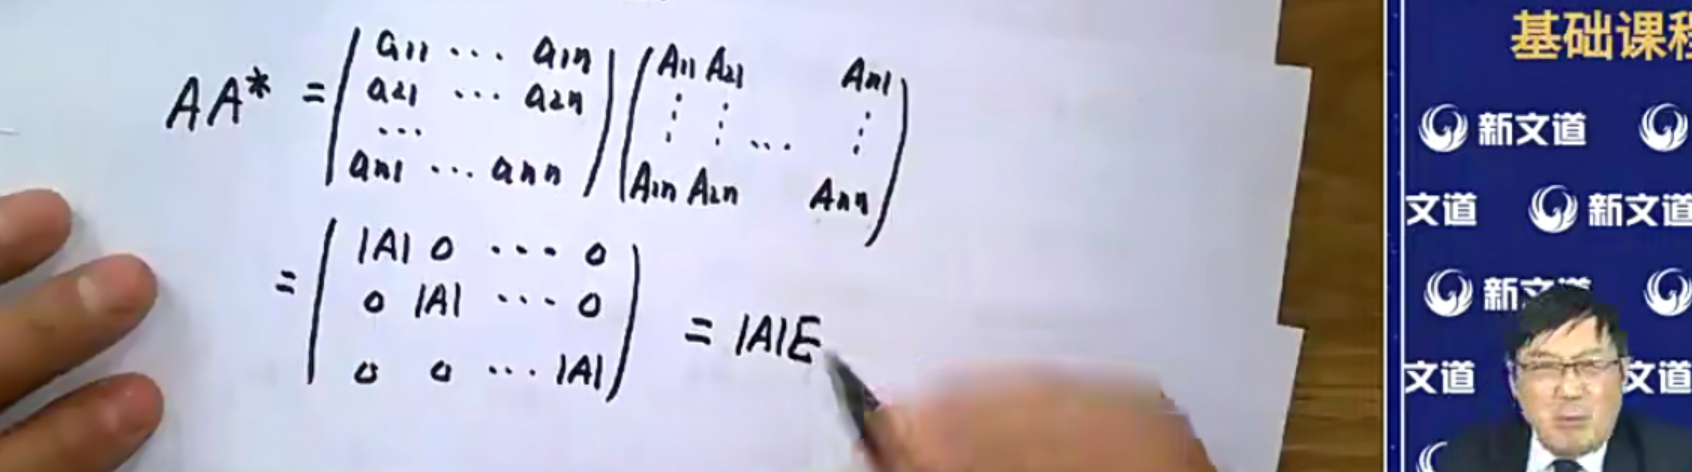 AA* = ( a11 ... a1n ) ( A11 A21 An1 )
a21 ... a2n ⋮ ⋮ ... ⋮
...
an1 ... ann A1n A2n Ann
= ( |A| 0 ... 0 )
0 |A| ... 0
0 0 ... |A|
= |A|E
基础课程
新文道
文道 新文道
新文道
文道 文道